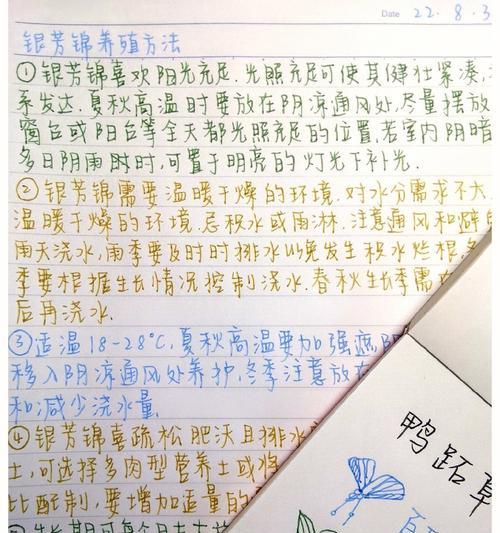 Date 22.8.3
银芳锦养殖方法
①银芳锦喜欢阳光充足.光照充足可使其健壮紧凑,
系发达.夏秋高温时要放在阴凉通风处.尽量摆放
窗台或阳台等全天都光照充足的位置.若室内阴暗
多日阴雨时时,可置于明亮的灯光下补光.
②银芳锦需要温暖干燥的环境.对水分需求不大
温暖干燥的环境.忌积水或雨淋.注意通风和避
雨天浇水,雨季要及时时排水以免发生积水烂根.
季要根据生长情况控制浇水.春秋生长季需
后再浇水.
③适温18-28℃,夏秋高温要加强遮阴
移入阴凉通风处养护.冬季注意放在
和减少浇水量.
④银芳锦喜疏松肥沃且排水
土,可选择多肉型营养土或将
比配制,要增加适量的
生长期可每个月
鸭跖草